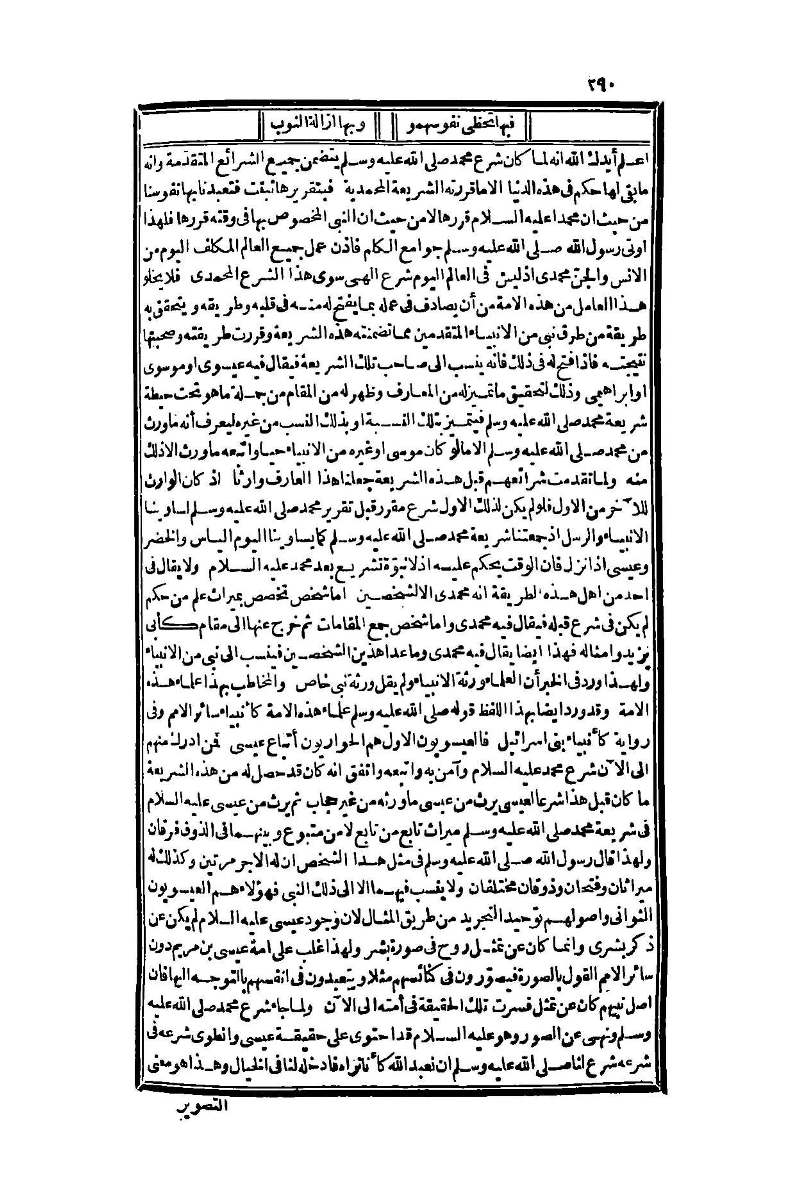 ٢٩٠
فيها تحظى نفوسهمو وبها ازالة النوب
اعلم أيدك الله انه لما كان شرع محمد صلى الله عليه وسلم يتضمن جميع الشرائع المتقدمة وانه
ما بقى لها حكم فى هذه الدنيا الا ما قررته الشريعة المحمدية فبتقريرها ثبتت فتعبدنا بها نفوسنا
من حيث ان محمدا عليه السلام قررها لا من حيث ان النبى المخصوص بها فى وقته قررها فلهذا
اوتى رسول الله صلى الله عليه وسلم جوامع الكلم فاذن عمل جميع العالم المكلف اليوم من
الانس والجن محمدى اذ ليس فى العالم اليوم شرع الهى سوى هذا الشرع المحمدى فلا يخلو
هذا العامل من هذه الامة من أن يصادف فى عمله بما يفتح له منه فى قلبه وطريقه ويتحقق به
طريقة من طرق نبى من الانبياء المتقدمين مما تضمنته هذه الشريعة وقررت طريقته وصحبتها
نتيجته فاذا فتح له فى ذلك فانه ينسب الى صاحب تلك الشريعة فيقال فيه عيسوى او موسوى
او ابراهيمى وذلك لتحقيق ما تميز له من المعارف وظهر له من المقام من جملة ما هو تحت حيطة
شريعة محمد صلى الله عليه وسلم فيتميز بتلك النسبة او بذلك النسب من غيره ليعرف أنه ما ورث
من محمد صلى الله عليه وسلم الا ما لو كان موسى او غيره من الانبياء حيا واتبعه ما ورث الا ذلك
منه ولما تقدمت شرائعهم قبل هذه الشريعة جعلنا هذا العارف وارثا اذ كان الوارث
للآخر من الاول فلو لم يكن لذلك الاول شرع مقرر قبل تقرير محمد صلى الله عليه وسلم لساوينا
الانبياء والرسل اذ جمعتنا شريعة محمد صلى الله عليه وسلم كما يساوينا اليوم الياس والخضر
وعيسى اذا نزل فان الوقت يحكم عليه اذ لا نبوة تشريع بعد محمد عليه السلام ولا يقال فى
احد من اهل هذه الطريقة انه محمدى الا لشخصين اما شخص تخصص بميراث علم من حكم
لم يكن فى شرع قبله فيقال فيه محمدى واما شخص جمع المقامات ثم خرج عنها الى مقام كأبى
يزيد وامثاله فهذا ايضا يقال فيه محمدى وما عدا هذين الشخصين فينسب الى نبى من الانبياء
ولهذا ورد فى الخبر أن العلماء ورثة الانبياء ولم يقل ورثة نبى خاص والمخاطب بهذا علماء هذه
الامة وقد ورد ايضا بهذا اللفظ قوله صلى الله عليه وسلم علماء هذه الامة كأنبياء سائر الامم وفى
رواية كأنبياء بنى اسرائيل فالعيسويون الاول هم الحواريون أتباع عيسى فمن ادرك منهم
الى الآن شرع محمد عليه السلام وآمن به واتبعه واتفق انه كان قد حصل له من هذه الشريعة
ما كان قبل هذا شرعا لعيسى يرث من عيسى ما ورثه من غير حجاب ثم يرث من عيسى عليه السلام
فى شريعة محمد صلى الله عليه وسلم ميراث تابع من تابع لا من متبوع وبينهما فى الذوق فرقان
ولهذا قال رسول الله صلى الله عليه وسلم فى مثل هذا الشخص ان له الاجر مرتين وكذلك له
ميراثان وفتحان وذوقان مختلفان ولا ينسب فيهما الا الى ذلك النبى فهؤلاء هم العيسويون
الثوانى واصولهم توحيد التجريد من طريق المثال لان وجود عيسى عليه السلام لم يكن عن
ذكر بشرى وانما كان عن تمثل روح فى صورة بشر ولهذا غلب على امة عيسى بن مريم دون
سائر الامم القول بالصورة فيصوّرون فى كنائسهم مثلا ويتعبدون فى انفسهم بالتوجه اليها فان
اصل نبيهم كان عن تمثل فسرت تلك الحقيقة فى أمته الى الآن ولما جاء شرع محمد صلى الله عليه
وسلم ونهى عن الصور وهو عليه السلام قد احتوى على حقيقة عيسى وانطوى شرعه فى
شرعه شرع لنا صلى الله عليه وسلم ان نعبد الله كأنا نراه فادخله لنا فى الخيال وهذا هو معنى
التصوير